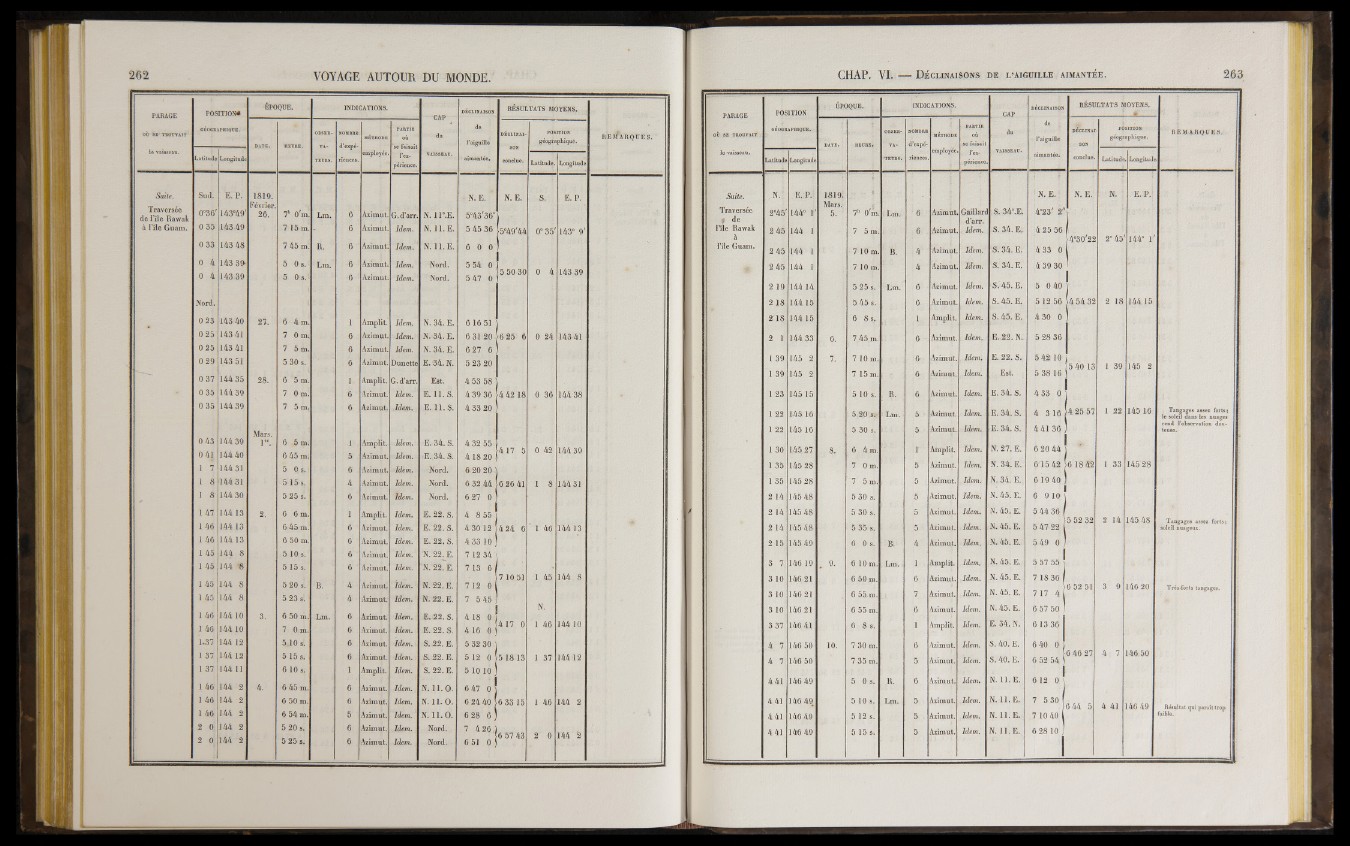 262
VOYAGE AUTOUR DU MONDE.
PARAGE OÙ SE TROUVAIT le vaisseau.
POSITION GÉOGRAPHIQUE. Latitude Longitude
ÉPOQUE. DATE. HEURE.
INDICATIONS. OBSERVATEURS. NOMBRE d'expériences. MÉTHODE employée. PARTIE où se faisait l'expérience.
CAP du VAISSEAU.
DÉCLINAISON de l'aiguille aimantée.
RÉSULTATS MOYENS. DÉCLINAISON conclue. POSITION géographique. Latitude. Longitude
REMARQUES.
Suite. Sud. E. P. 1819. N. E. N. E. S. E. P.
Traversée de l'île Rawak à l'île Guam.
Février.
0°36' 143°49' 26. 7h 0'm. Lm. 6 Azimut. G. d'arr. N. 11°.E. 5°43'36"
0 35 143 49 7 15 m. 6 Azimut. Idem. N. 11. E. 5 45 36 5°49'44 0° 35' 143° 9'
0 33 143 48 7 45 m. R. 6 Azimut. Idem. N. 11. E. 6 0 0
0 4 143 39 5 0 s. Lm. 6 Azimut. Idem. Nord. 5 54 0
0 4 143 39 5 0 s. 6 Azimut. Idem. Nord. 5 47 0 5 50 30 0 4 143 39
Nord.
0 23 143 40 27. 6 4 m. 1 Amplit. Idem. N. 34. E. 6 16 51
0 25 143 41 7 0 m. 6 Azimut. Idem. N. 34. E. 6 31 20 6 25 6 0 24 143 41
0 25 143 41 7 5 m. 6 Azimut. Idem. N. 34. E. 6 27 6
0 29 143 51 5 30 s. 6 Azimut. Dunette E. 34. N. 5 23 20
0 37 144 35 28. 6 5 m. 1 Amplit. G. d'arr. Est. 4 53 58
0 35 144 39 7 0 m. 6 Azimut. Idem. E. 11. S. 4 39 36 4 42 18 0 36 144 38
0 35 144 39 7 5 m. 6 Azimut. Idem. E. 11. S. 4 33 20
Mars.
0 43 144 39 1er. 6 5 m. 1 Amplit. Idem. E. 34. S. 4 32 55
0 41 144 40 6 45 m. 5 Azimut. Idem. E. 34. S. 4 18 20 4 17 5 0 42 144 39
1 7 144 31 5 0 s. 6 Azimut. Idem. Nord. 6 20 20
1 8 144 31 5 15 s. 4 Azimut. Idem. Nord. 6 32 44 6 26 41 1 8 144 31
1 8 144 30 5 25 s. 6 Azimut. Idem. Nord. 6 27 0
1 47 144 13 2. 6 6 m. 1 Amplit. Idem. E. 22. S. 4 8 55
1 46 144 13 6 45 m. 6 Azimut. Idem. E. 22. S. 4 30 12 4 24 6 1 46 144 13
1 46 144 13 6 50 m. 6 Azimut. Idem. E. 22. S. 4 33 10
1 45 144 8 5 10 s. 6 Azimut. Idem. N. 22. E. 7 12 34
1 45 144 8 5 15 s. 6 Azimut. Idem. N. 22. E. 7 15 6
1 45 144 8 5 20 s. B. 4 Azimut. Idem. N. 22. E. 7 12 0 7 10 51 1 45 144 8
1 45 144 8 5 23 s. 4 Azimut. Idem. N. 22. E. 7 5 45
N.
1 46 144 10 3. 6 50 m. Lm. 6 Azimut. Idem. E. 22. S. 4 18 0
1 46 144 10 7 0 m. 6 Azimut. Idem. E. 22. S. 4 16 0 4 17 0 1 46 144 10
1 37 144 12 5 10 s. 6 Azimut. Idem. S. 22. E. 5 32 30
1 37 144 12 5 15 s. 6 Azimut. Idem. S. 22. E. 5 12 0 5 18 13 1 37 144 12
1 37 144 11 6 10 s. 1 Amplit. Idem. S. 22. E. 5 10 10
1 46 144 2 4. 6 45 m. 6 Azimut. Idem. N. 11. O. 6 47 0
1 46 144 2 6 50 m. 6 Azimut. Idem. N. 11. O. 6 24 40 6 33 15 1 46 144 2
1 46 144 2 6 54 m. 5 Azimut. Idem. N. 11. O. 6 28 6
2 0 144 2 5 20 s. 6 Azimut. Idem. Nord. 7 4 26
2 0 144 2 5 25 s. 6 Azimut. Idem. Nord. 6 51 0 6 57 43 2 0 144 2
CHAP. VI. — DÉCLINAISONS DE L'AIGUILLE AIMANTÉE.
263
PARAGE OÙ SE TROUVAIT le vaisseau.
POSITION GÉOGRAPHIQUE. Latitude Longitude.
ÉPOQUE. DATE. HEURE.
INDICATIONS. OBSERVATEURS. NOMBRE d'expériences. MÉTHODE employée. PARTIE où se faisait l'expérience.
CAP du VAISSEAU.
DÉCLINAISON de l'aiguille aimantée.
RÉSULTATS MOYENS. DÉCLINAISON conclue. POSITION géographique. Latitude. Longitude.
REMARQUES.
Suite. N. E. P. 1819. N. E. N. E. N. E. P.
Traversée de l'île Rawak à l'île Guam.
Mars.
2°45' 144° 1' 5. 7h 0'm. Lm. 6 Azimut. Gaillard d'arr. S. 34°.E. 4°23' 2"
2 45 144 1 7 5 m. 6 Azimut. Idem. S. 34. E. 4 25 56
2 45 144 1 7 10 m. B. 4 Azimut. Idem. S. 34. E. 4 33 0 4°30'22 2° 45' 144° 1'
2 45 144 1 7 10 m. 4 Azimut. Idem. S. 34. E. 4 39 30
2 19 144 14 5 25 s. Lm. 6 Azimut. Idem. S. 45. E. 5 0 40
2 18 144 15 5 45 s. 6 Azimut. Idem. S. 45. E. 5 12 56 4 54 32 2 18 144 15
2 18 144 15 6 8 s. 1 Amplit. Idem. S. 45. E. 4 30 0
2 1 144 33 6. 7 45 m. 6 Azimut. Idem. E. 22. N. 5 28 36
1 39 145 2 7. 7 10 m. 6 Azimut. Idem. E. 22. S. 5 42 10
1 39 145 2 7 15 m. 6 Azimut. Idem. Est. 5 38 16 5 40 13 1 39 145 2
1 23 145 15 5 10 s. R. 6 Azimut. Idem. E. 34. S. 4 33 0
1 22 145 16 5 20 s. Lm. 5 Azimut. Idem. E. 34. S. 4 3 16 4 25 57 1 22 145 16 Tangages assez forts; le soleil dans les nuages rend l'observation douteuse.
1 22 145 16 5 30 s. 5 Azimut. Idem. E. 34. S. 4 41 36
1 30 145 27 8. 6 4 m. 1 Amplit. Idem. N. 27. E. 6 20 44
1 35 145 28 7 0 m. 5 Azimut. Idem. N. 34. E. 6 15 42 6 18 42 1 33 145 28
1 35 145 28 7 5 m. 5 Azimut. Idem. N. 34. E. 6 19 40
2 14 145 48 5 30 s. 5 Azimut. Idem. N. 45. E. 6 9 10
2 14 145 48 5 30 s. 5 Azimut. Idem. N. 45. E. 5 44 36
2 14 145 48 5 35 s. 5 Azimut. Idem. N. 45. E. 5 47 22 5 52 32 2 14 145 48 Tangages assez forts; soleil nuageux.
2 15 145 49 6 0 s. B. 4 Azimut. Idem. N. 45. E. 5 49 0
3 7 146 19 9. 6 10 m. Lm. 1 Amplit. Idem. N. 45. E. 5 57 55
3 10 146 21 6 50 m. 6 Azimut. Idem. N. 45. E. 7 18 36
3 10 146 21 6 55 m. 7 Azimut. Idem. N. 45. E. 7 17 4 6 52 51 3 9 146 20 Très-forts tangages.
3 10 146 21 6 55 m. 6 Azimut. Idem. N. 45. E. 6 57 50
3 37 146 41 6 8 s. 1 Amplit. Idem. E. 34. N. 6 13 36
4 7 146 50 10. 7 30 m. 6 Azimut. Idem. S. 40. E. 6 40 0
4 7 146 50 7 35 m. 5 Azimut. Idem. S. 40. E. 6 52 54 6 46 27 4 7 146 50
4 41 146 49 5 0 s. R. 6 Azimut. Idem. N. 11. E. 6 12 0
4 41 146 49 5 10 s. Lm. 5 Azimut. Idem. N. 11. E. 7 5 30
4 41 146 49 5 12 s. 5 Azimut. Idem. N. 11. E. 7 10 40 6 44 5 4 41 146 49 Résultat qui paraît trop faible.
4 41 146 49 5 15 s. 5 Azimut. Idem. N. 11. E. 6 28 10